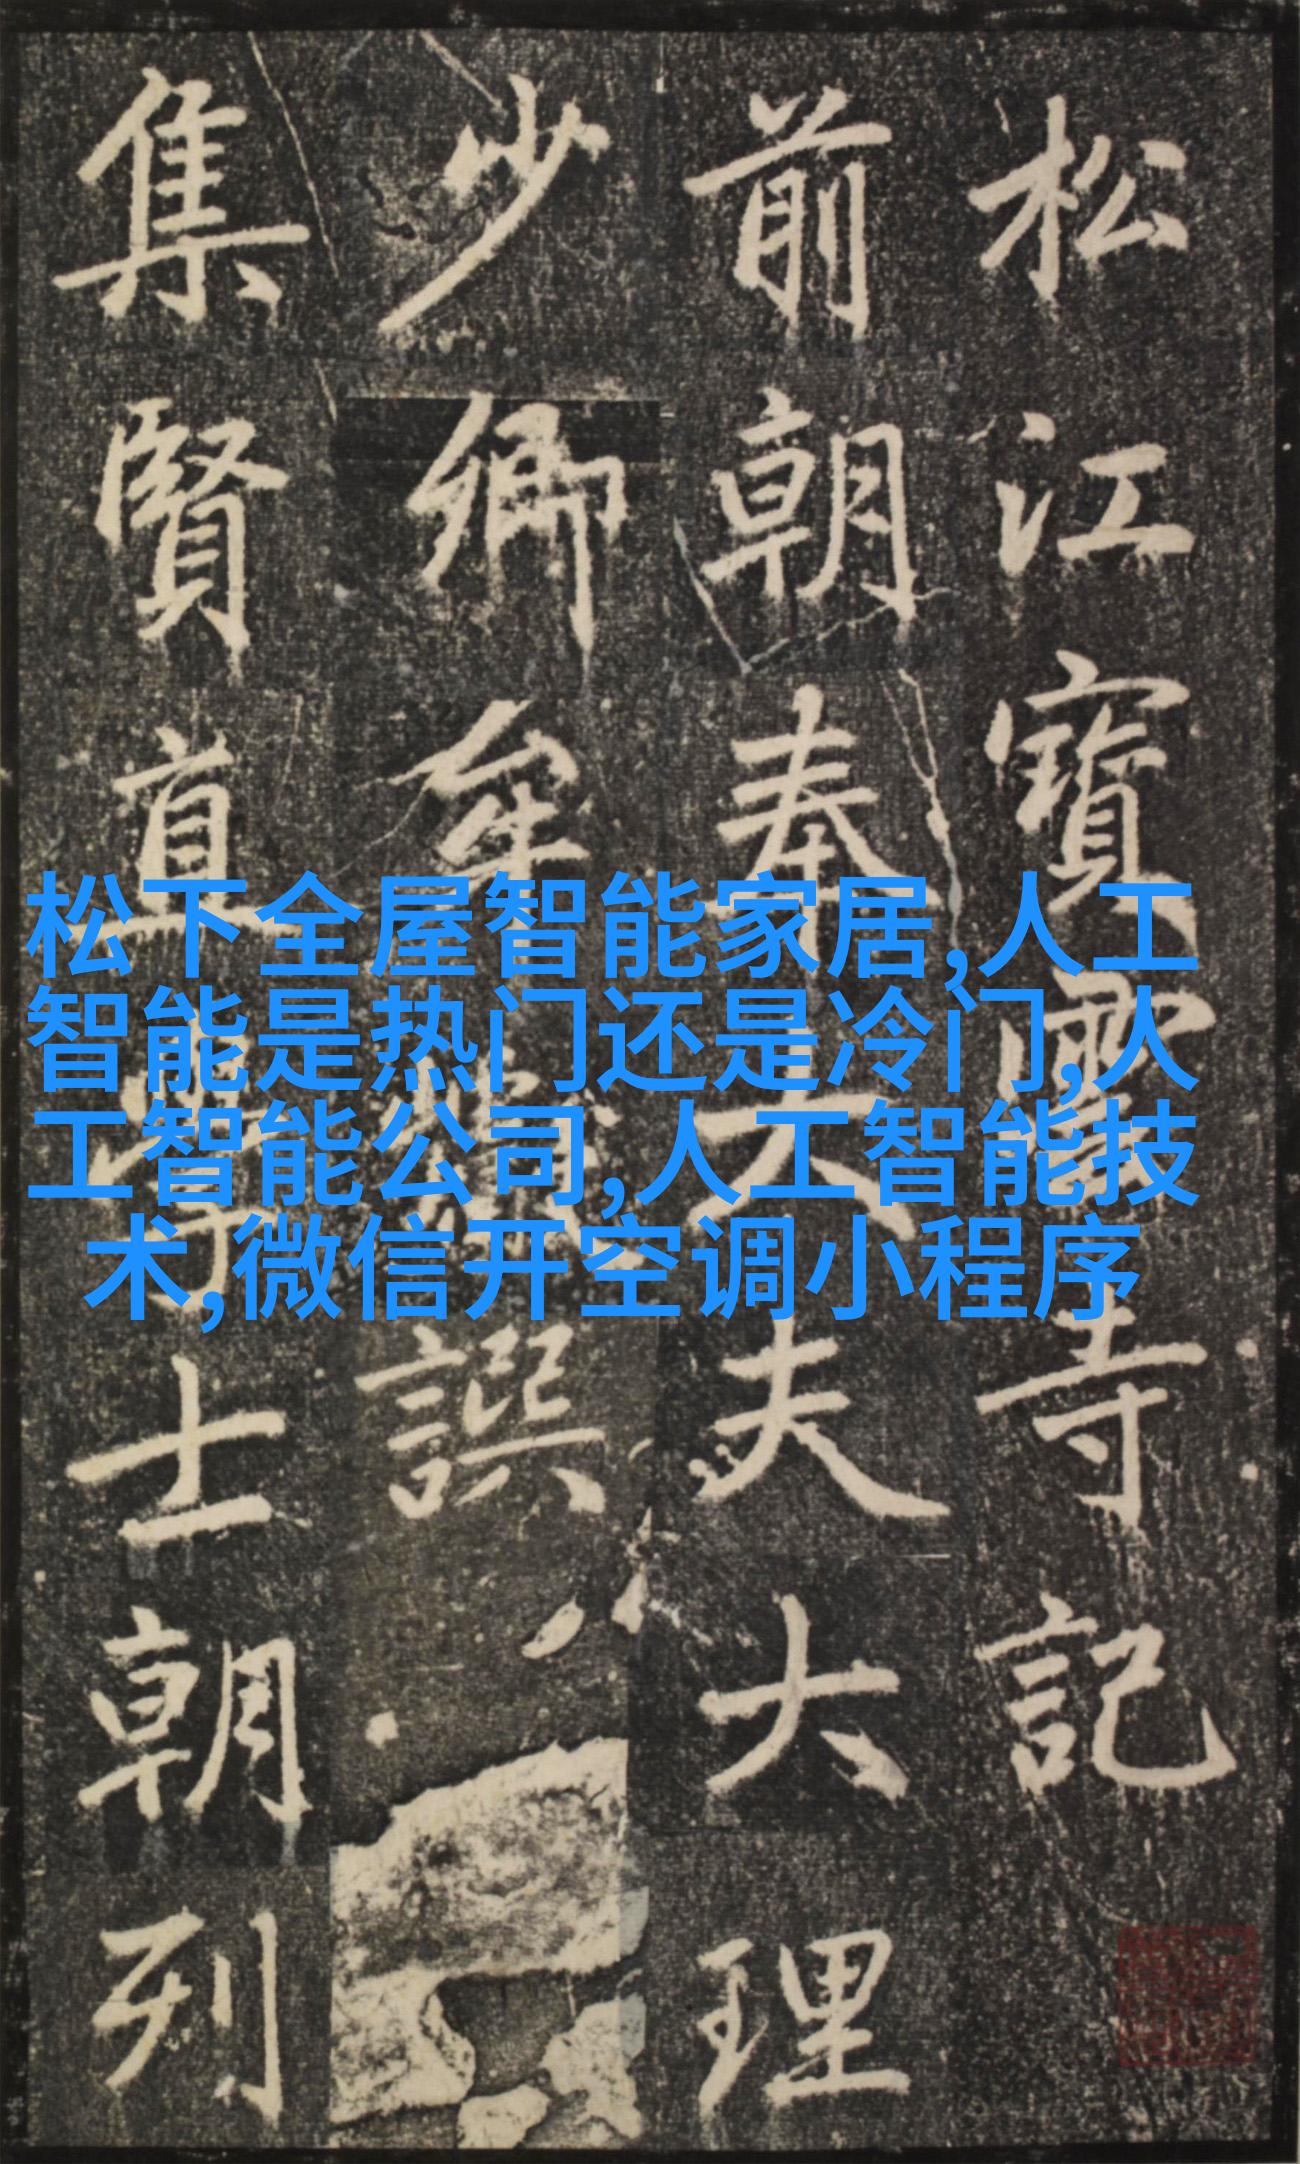 松江寶雲寺記
前朝奉大夫大理
少卿牟巘譔
集賢直學士朝列
松下全屋智能家居,人工
智能是热门还是冷门,人
工智能公司,人工智能技
术,微信开空调小程序